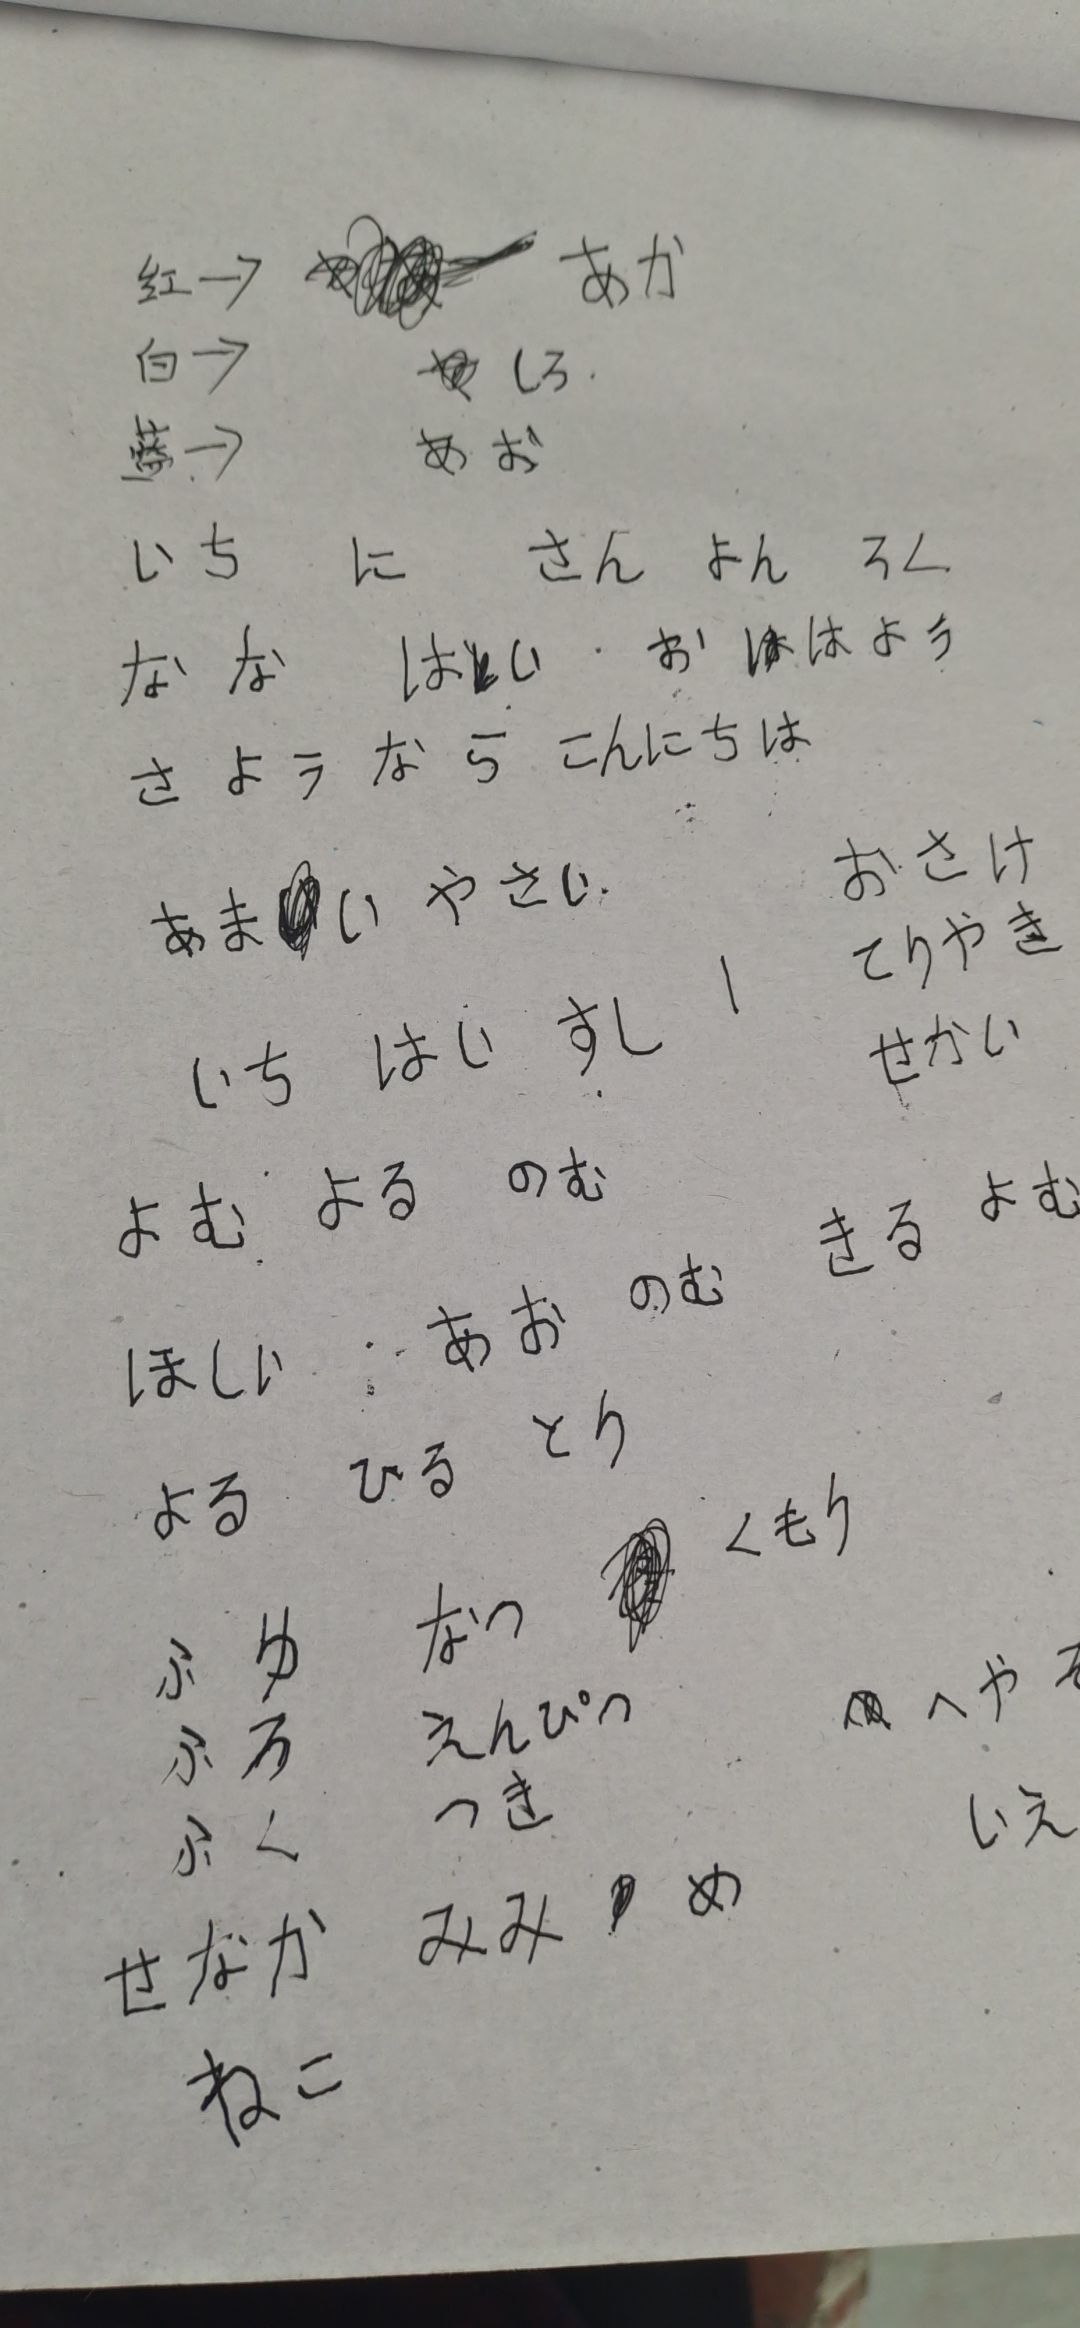 红→ あか
白→ しろ
蓝→ あお
いち に さん よん ろく
なな はい おはよう
さようなら こんにちは
あまい やさい おさけ
てりやき
いち はい すし せかい
よむ よる のむ
きる よむ
ほしい あお のむ
よる ひる とり
くもり
ふゆ なつ
ふろ えんぴつ へや
ふく つき いえ
せなか みみ め
ねこ